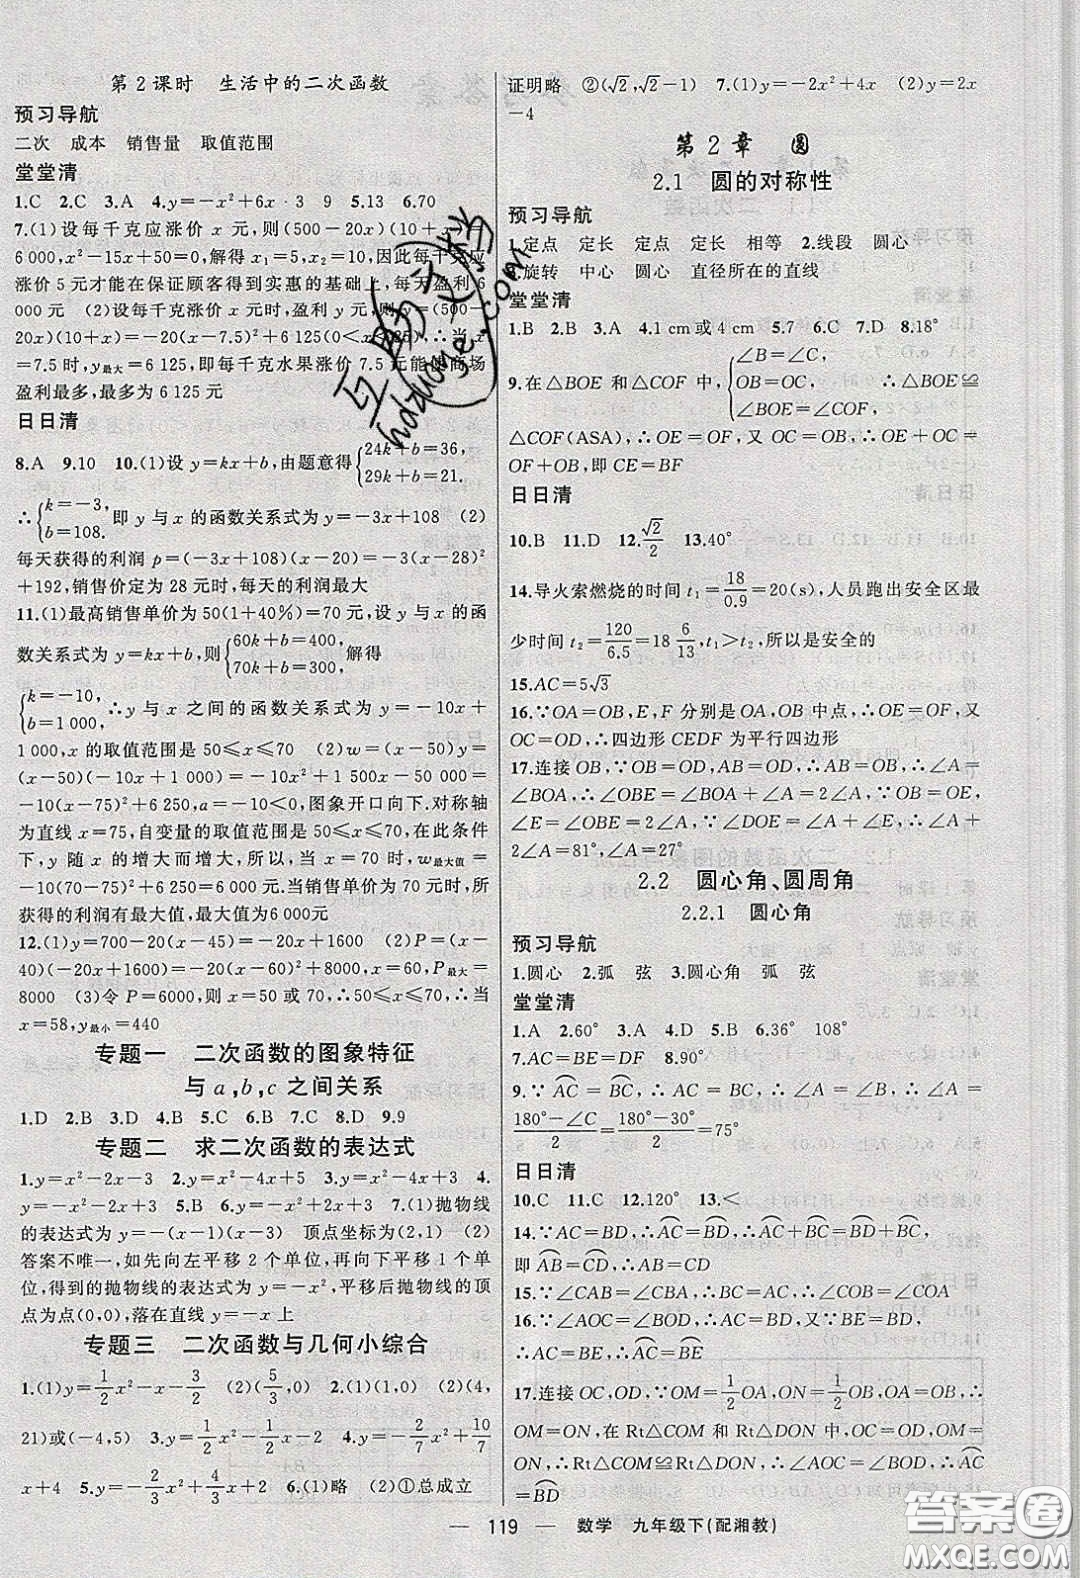 第2课时　生活中的二次函数
预习导航
二次　成本　销售量　取值范围
堂堂清
1.C　2.C　3.A　4.y=-x²+6x·3　9　5.13　6.70
7.(1)设每千克应涨价 x 元,则(500-20x)(10+x)=
6 000,x²-15x+50=0,解得 x₁=5,x₂=10,因此每千克应
涨价 5 元才能在保证顾客得到实惠的基础上,每天盈利 6
000元　(2)设每千克涨价 x 元时,盈利 y 元,则 y=(500-
20x)(10+x)=-20(x-7.5)²+6 125(0<x<25),∴当 x
=7.5 时,y最大=6 125,即每千克水果涨价 7.5 元能使商场
盈利最多,最多为 6 125元
日日清
8.A　9.10　10.(1)设 y=kx+b,由题意得{24k+b=36,
29k+b=21.
∴{k=-3,
b=108.即 y 与 x 的函数关系式为 y=-3x+108　(2)
每天获得的利润 p=(-3x+108)(x-20)=-3(x-28)²
+192,销售价定为 28 元时,每天的利润最大
11.(1)最高销售单价为 50(1+40%)=70 元,设 y 与 x 的函
数关系式为 y=kx+b,则{60k+b=400,
70k+b=300,解得
{k=-10,
b=1 000,∴y 与 x 之间的函数关系式为 y=-10x+
1 000,x 的取值范围是 50≤x≤70　(2)w=(x-50)y=
(x-50)(-10x+1 000)=-10x²+1 500x-50 000=
-10(x-75)²+6 250,a=-10<0,图象开口向下.对称轴
为直线 x=75,自变量的取值范围是 50≤x≤70,在此条件
下,y 随 x 的增大而增大,所以,当 x=70 时,w最大值=
-10(70-75)²+6250=6000.当销售单价为 70 元时,所
获得的利润有最大值,最大值为 6 000元
12.(1)y=700-20(x-45)=-20x+1600　(2)P=(x-
40)(-20x+1600)=-20(x-60)²+8000,当 x=60,P最大=
8000　(3)令 P=6000,则 x=50 或 70,∴50≤x≤58,∴当
x=58,y最小=440
专题一　二次函数的图象特征
与 a,b,c 之间关系
1.D　2.B　3.D　4.D　5.C　6.B　7.C　8.D　9.9
专题二　求二次函数的表达式
1.y=x²-2x-3　2.y=x²-4x+5　3.y=x²-4x+3　4.
y=-x²-2x+3　5.y=x²-3x　6.y=-x²+2x+3　7.(1)抛物线
的表达式为 y=-(x-1)(x-3)　顶点坐标为(2,1)　(2)
答案不唯一,如先向左平移 2 个单位,再向下平移 1 个单
位,得到的抛物线的表达式为 y=-x²,平移后抛物线的顶
点为(0,0),落在直线 y=-x 上
专题三　二次函数与几何小综合
1.(1)y=1/2x²-x-3/2　(2)(5/3,0)　2.(1)(1,0)　(2)(4,
21)或(-4,5)　3.y=1/2x²-3/2x-2　4.y=-2/7x²+10/7
x+4　5.y=-2/3x²+4/3x+2　6.(1)略　(2)①总成立
证明略　②(√2,√2-1)　7.(1)y=-2x²+4x　(2)y=2x
-4
第2章　圆
2.1　圆的对称性
预习导航
1.定点　定长　定点　定长　相等　2.线段　圆心
3.旋转　中心　圆心　直径所在的直线
堂堂清
1.B　2.B　3.A　4.1 cm或4 cm　5.7　6.C　7.D　8.18°
9.在△BOE 和△COF 中,{∠B=∠C,
OB=OC,
∠BOE=∠COF,　∴△BOE≌
△COF(ASA),∴OE=OF,又 OC=OB,∴OE+OC=
OF+OB,即 CE=BF
日日清
10.B　11.D　12.√2/2　13.40°
14.导火索燃烧的时间 t₁=18/0.9=20(s),人员跑出安全区最
少时间 t₂=120/6.5=18 6/13,t₁>t₂,所以是安全的
15.AC=5√3
16.∵OA=OB,E,F 分别是 OA,OB 中点,∴OE=OF,又
OC=OD,∴四边形 CEDF 为平行四边形
17.连接 OB,∵OB=OD,AB=OD,∴AB=OB,∴∠A=
∠BOA,∴∠OBE=∠BOA+∠A=2∠A,∵OB=OE,
∠E=∠OBE=2∠A,∵∠DOE=∠A+∠E,∴∠A+
2∠A=81°,∠A=27°
2.2　圆心角、圆周角
2.2.1　圆心角
预习导航
1.圆心　2.弧　弦　3.圆心角　弧　弦
堂堂清
1.A　2.60°　3.A　4.D　5.B　6.36°　108°
7.AC=BE=DF　8.90°
9.∵AC⌢=BC⌢,∴AC=BC,∴∠A=∠B,∴∠A=
(180°-∠C)/2=(180°-30°)/2=75°
日日清
10.C　11.C　12.120°　13.<
14.∵AC=BD,∴AC⌢=BD⌢,∴AC⌢+BC⌢=BD⌢+BC⌢,
即 AB⌢=CD⌢,∴AB=CD
15.∵∠CAB=∠CBA,∴BC=AC,∴∠COB=∠COA
16.∵∠AOC=∠BOD,∴AC⌢=BD⌢,∵BD⌢=BE⌢,
∴AC⌢=BE⌢
17.连接 OC,OD,∵OM=1/2OA,ON=1/2OB,OA=OB,∴
OM=ON,在 Rt△COM 和Rt△DON 中,OM=ON,OC=
OD,∴Rt△COM≌Rt△DON,∴∠COA=∠DOB,∴AC⌢
=BD⌢
— 119 —　数学　九年级下(配湘教)
互助文档
hdzuoye.com
答案圈
MXQE.COM